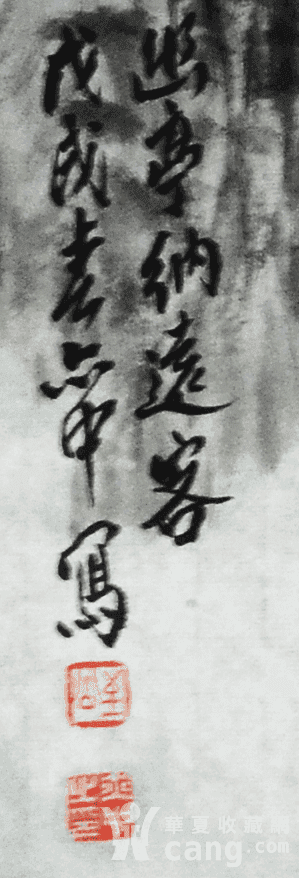 幽亭纳遠客
戊戌春六中寫
華夏收藏網
cang.com